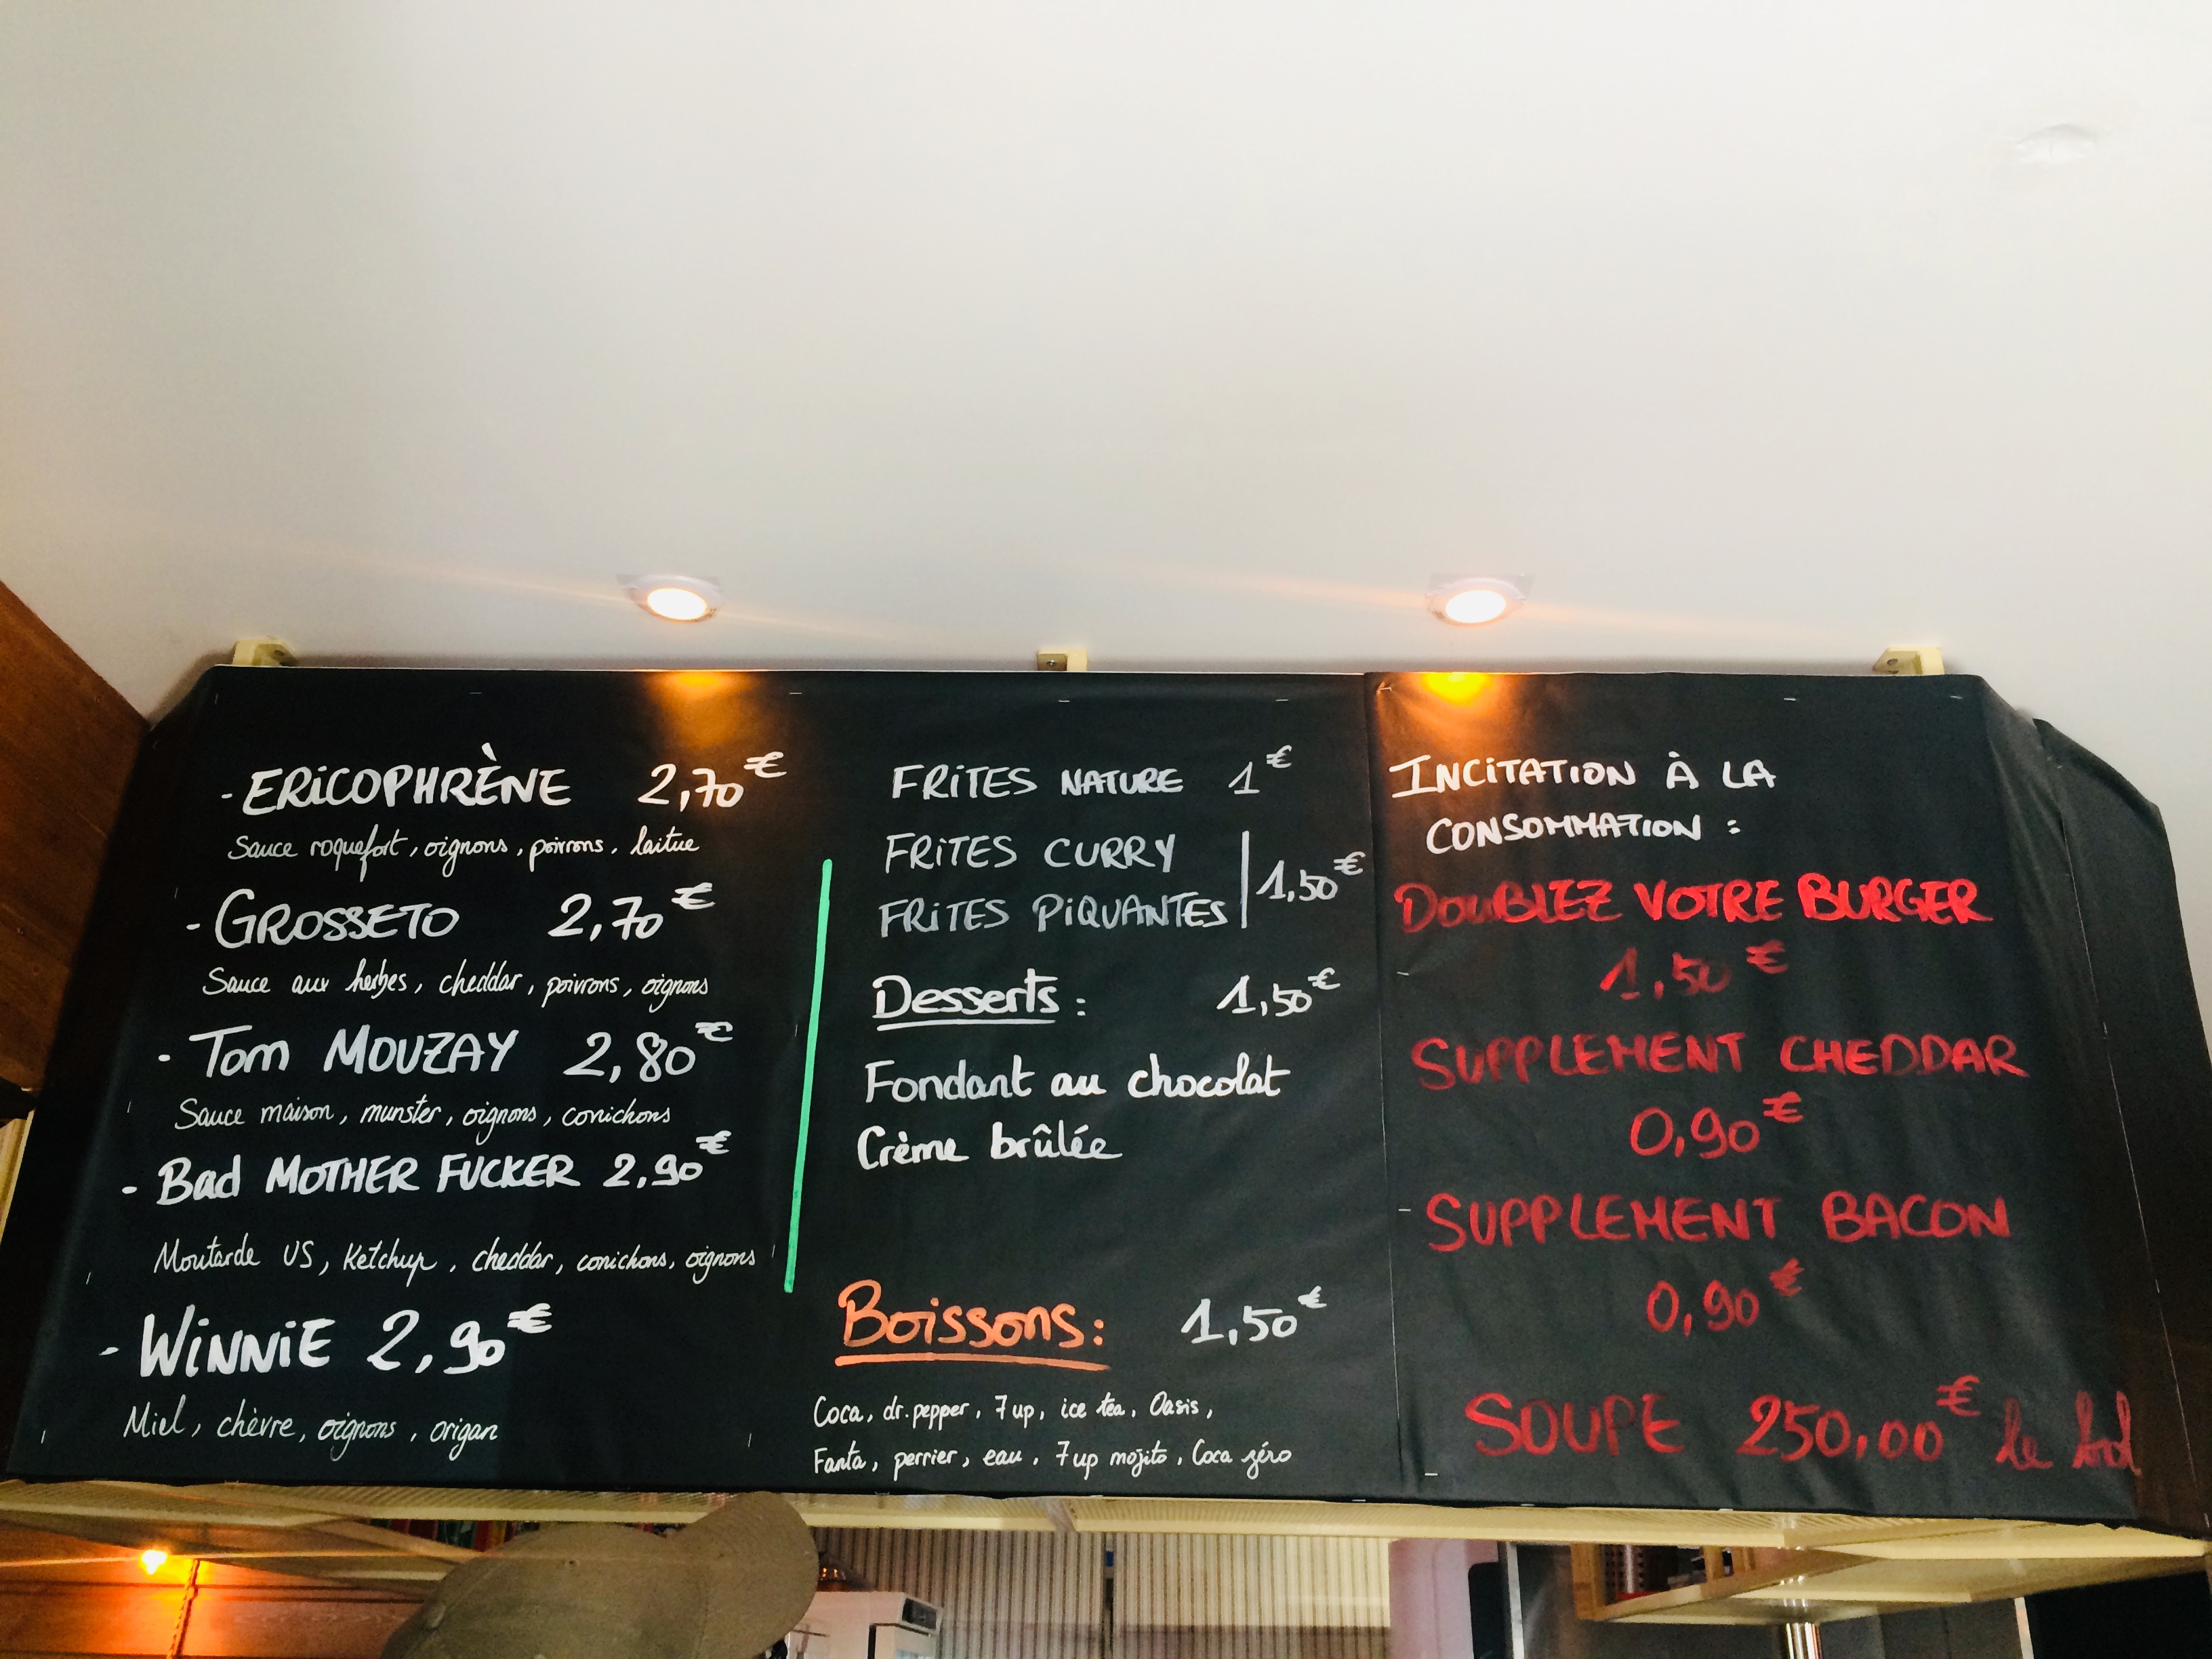 - ERICOPHRÈNE 2,70€
Sauce roquefort, oignons, poivrons, laitue
- GROSSETO 2,70€
Sauce aux herbes, cheddar, poivrons, oignons
- Tom MOUZAY 2,80€
Sauce maison, munster, oignons, cornichons
- Bad MOTHER FUCKER 2,90€
Moutarde US, Ketchup, cheddar, cornichons, oignons
- WINNIE 2,90€
Miel, chèvre, oignons, origan
FRITES NATURE 1€
FRITES CURRY
FRITES PIQUANTES 1,50€
Desserts : 1,50€
Fondant au chocolat
Crème brûlée
Boissons : 1,50€
Coca, dr.pepper, 7up, ice tea, Oasis,
Fanta, perrier, eau, 7up mojito, Coca zéro
INCITATION À LA
CONSOMMATION :
DOUBLEZ VOTRE BURGER
1,50€
SUPPLEMENT CHEDDAR
0,90€
SUPPLEMENT BACON
0,90€
SOUPE 250,00€ le bol